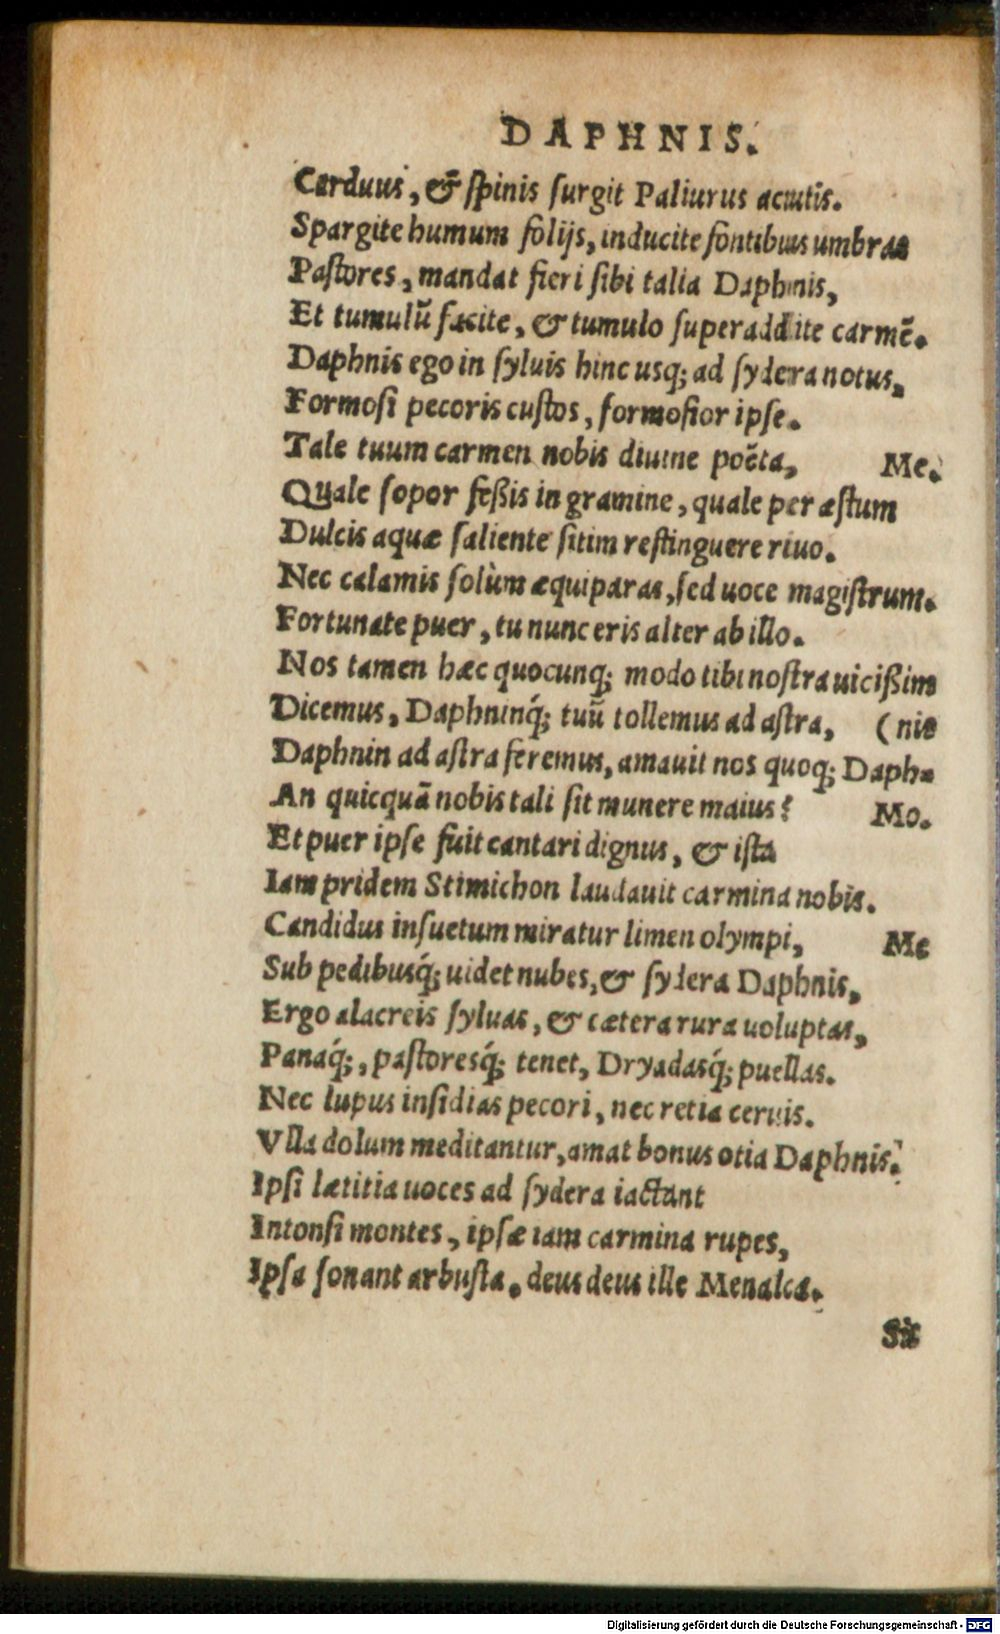 DAPHNIS.
Carduus, & ſpinis ſurgit Paliurus acutis.
Spargite humum folijs, inducite fontibus umbras
Paſtores, mandat fieri ſibi talia Daphnis,
Et tumulũ facite, & tumulo ſuperaddite carmẽ.
Daphnis ego in ſyluis hinc usq; ad ſydera notus,
Formoſi pecoris cuſtos, formoſior ipſe.
Tale tuum carmen nobis diuine poëta, Me.
Quale ſopor feßis in gramine, quale per æſtum
Dulcis aquæ ſaliente ſitim reſtinguere riuo.
Nec calamis ſolùm æquiparas, ſed uoce magiſtrum.
Fortunate puer, tu nunc eris alter ab illo.
Nos tamen hæc quocunq; modo tibi noſtra uicißim
Dicemus, Daphninq́; tuũ tollemus ad aſtra, (nis
Daphnin ad aſtra feremus, amauit nos quoq; Daph-
An quicquã nobis tali ſit munere maius? Mo.
Et puer ipſe fuit cantari dignus, & iſta
Iam pridem Stimichon laudauit carmina nobis.
Candidus inſuetum miratur limen olympi, Me
Sub pedibusq́; uidet nubes, & ſydera Daphnis,
Ergo alacreis ſyluas, & cætera rura uoluptas,
Panaq́;, paſtoresq́; tenet, Dryadasq́; puellas.
Nec lupus inſidias pecori, nec retia ceruis.
Vlla dolum meditantur, amat bonus otia Daphnis.
Ipſi lætitia uoces ad ſydera iactant
Intonſi montes, ipſæ iam carmina rupes,
Ipſa ſonant arbuſta. deus deus ille Menalca.
Sis
Digitalisierung gefördert durch die Deutsche Forschungsgemeinschaft - DFG